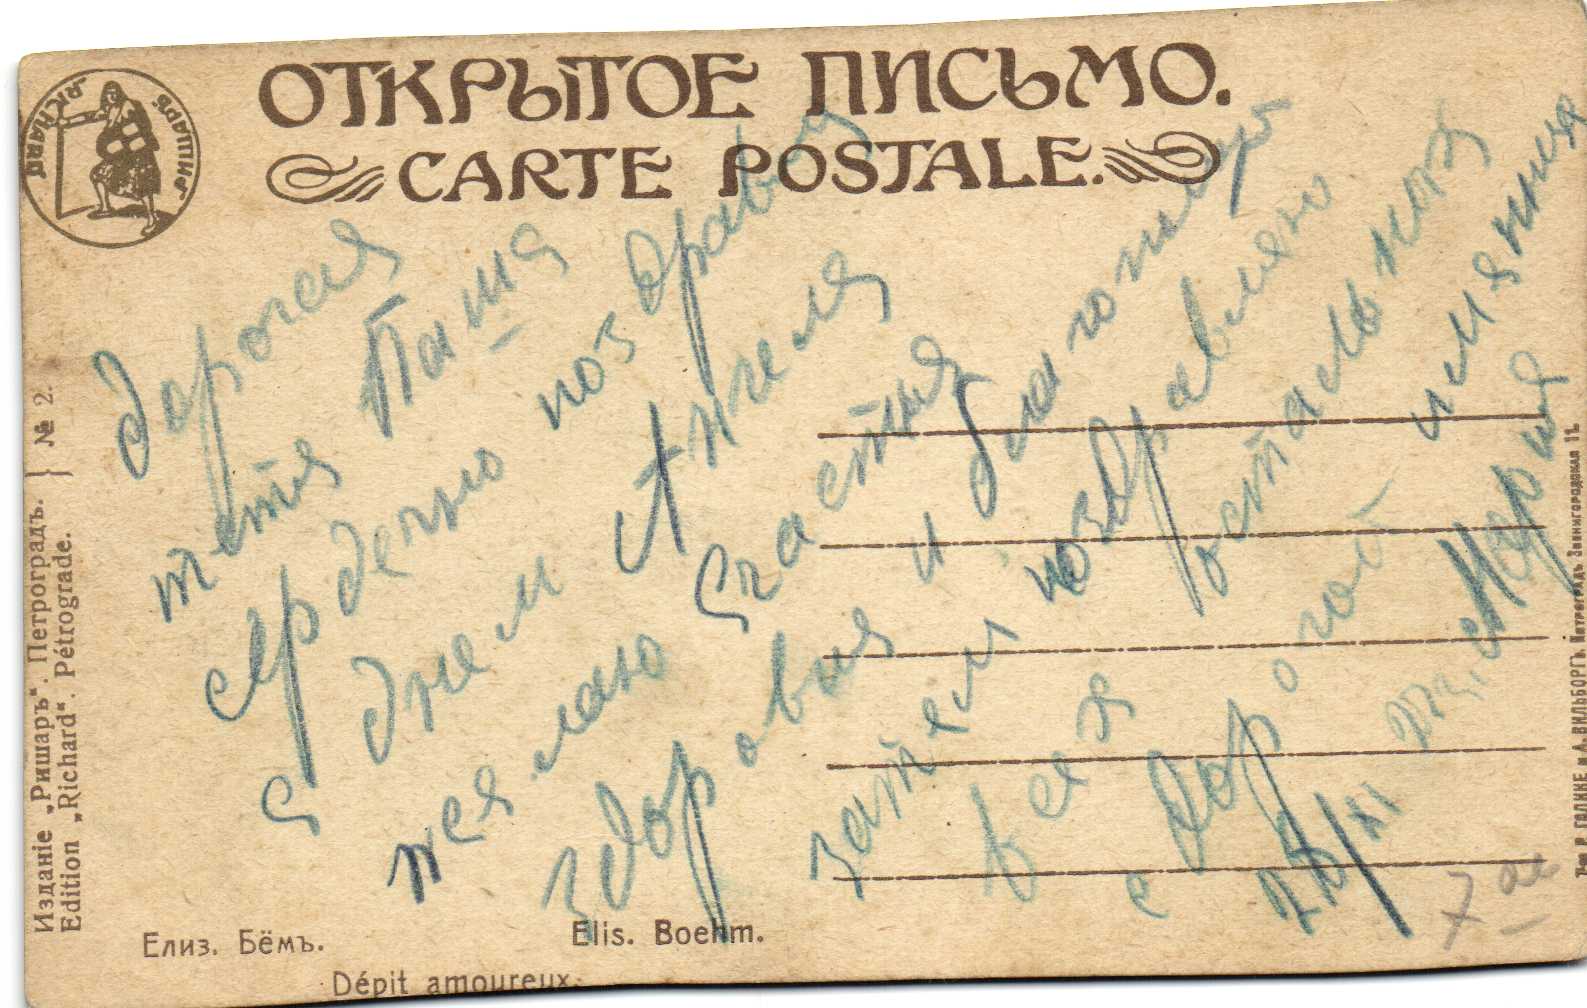 ОТКРЫТОЕ ПИСЬМО.
CARTE POSTALE.
„RICHARD“
„РИШАРЪ“
Дорогая
тетя Паша
сердечно поздравля
с днем Ангела
желаю Счастия
здоровия и благополуч
затем поздравляю
всех остальных
с дорогой имянинн
Мария
7
Изданіе „Ришаръ“. Петроградъ.
Edition „Richard“. Pétrograde.
№ 2.
Елиз. Бёмъ.
Elis. Boehm.
Dépit amoureux.
Р. ГОЛИКЕ и А. ВИЛЬБОРГЪ. Петроградъ, Звенигородская 11.